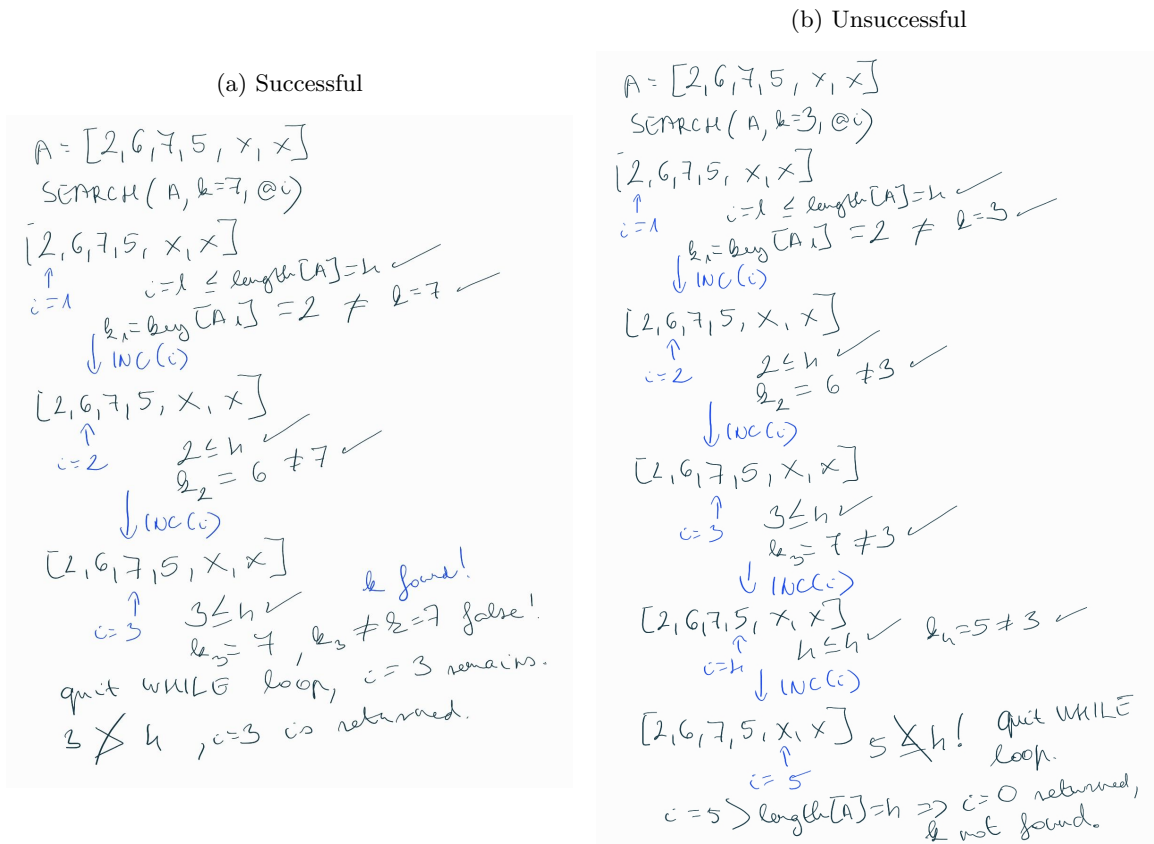 (a) Successful
A = [2,6,7,5, x, x]
SEARCH(A, k=7, @i)
[2,6,7,5, x, x]
↑
i=1
i=1 ≤ length[A]=4 ✓
k₁=key[A₁] = 2 ≠ k=7 ✓
↓ INC(i)
[2,6,7,5, x, x]
↑
i=2
2≤4 ✓
k₂ = 6 ≠7 ✓
↓ INC(i)
[2,6,7,5, x, x]
↑
i=3
3≤4 ✓
k found!
k₃=7, k₃ ≠ k=7 false!
quit WHILE loop, i=3 remains.
3 ≯ 4, i=3 is returned.
(b) Unsuccessful
A = [2,6,7,5, x, x]
SEARCH(A, k=3, @i)
[2,6,7,5, x, x]
↑
i=1
i=1 ≤ length[A]=4 ✓
k₁=key[A₁] = 2 ≠ k=3 ✓
↓ INC(i)
[2,6,7,5, x, x]
↑
i=2
2≤4 ✓
k₂ = 6 ≠3 ✓
↓ INC(i)
[2,6,7,5, x, x]
↑
i=3
3≤4 ✓
k₃= 7 ≠3 ✓
↓ INC(i)
[2,6,7,5, x, x]
↑
i=4
4≤4 ✓ k₄=5≠3 ✓
↓ INC(i)
[2,6,7,5, x, x] 5≰4! quit WHILE
loop.
↑
i=5
i=5 > length[A]=4 => i=0 returned,
k not found.